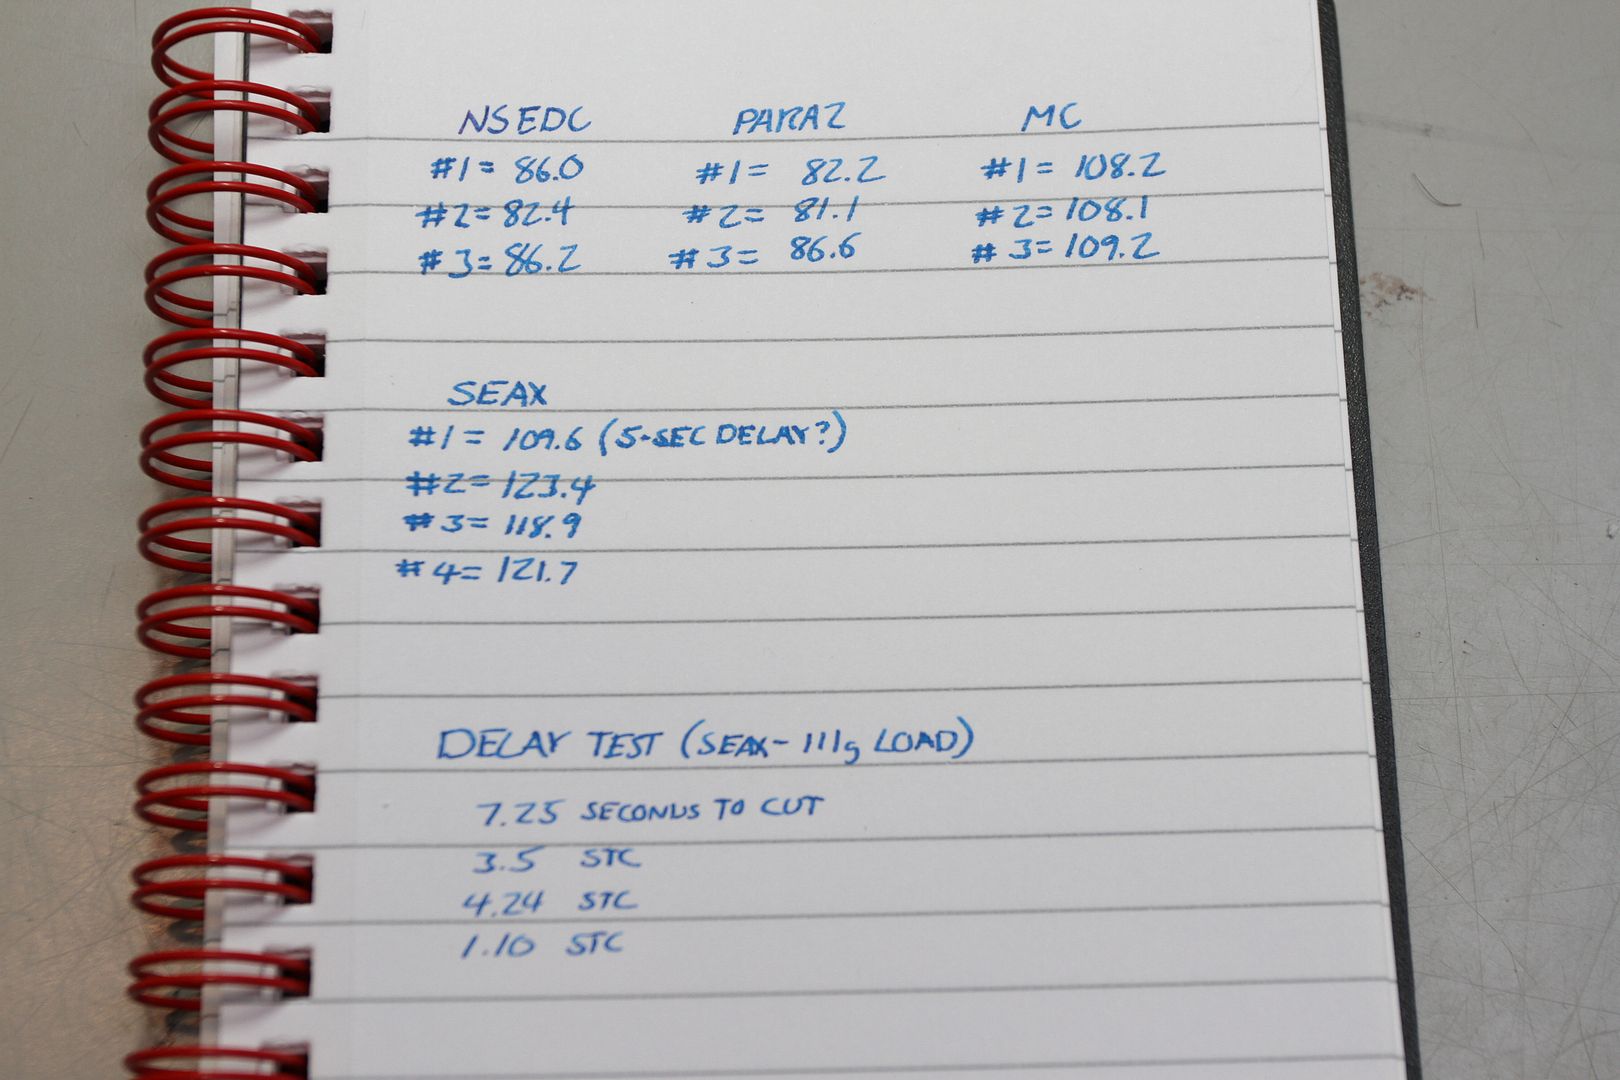 NSEDC PARA2 MC
#1= 86.0 #1= 82.2 #1= 108.2
#2= 82.4 #2= 81.1 #2= 108.1
#3= 86.2 #3= 86.6 #3= 109.2
SEAX
#1= 109.6 (5-SEC DELAY?)
#2= 123.4
#3= 118.9
#4= 121.7
DELAY TEST (SEAX- 111g LOAD)
7.25 SECONDS TO CUT
3.5 STC
4.24 STC
1.10 STC